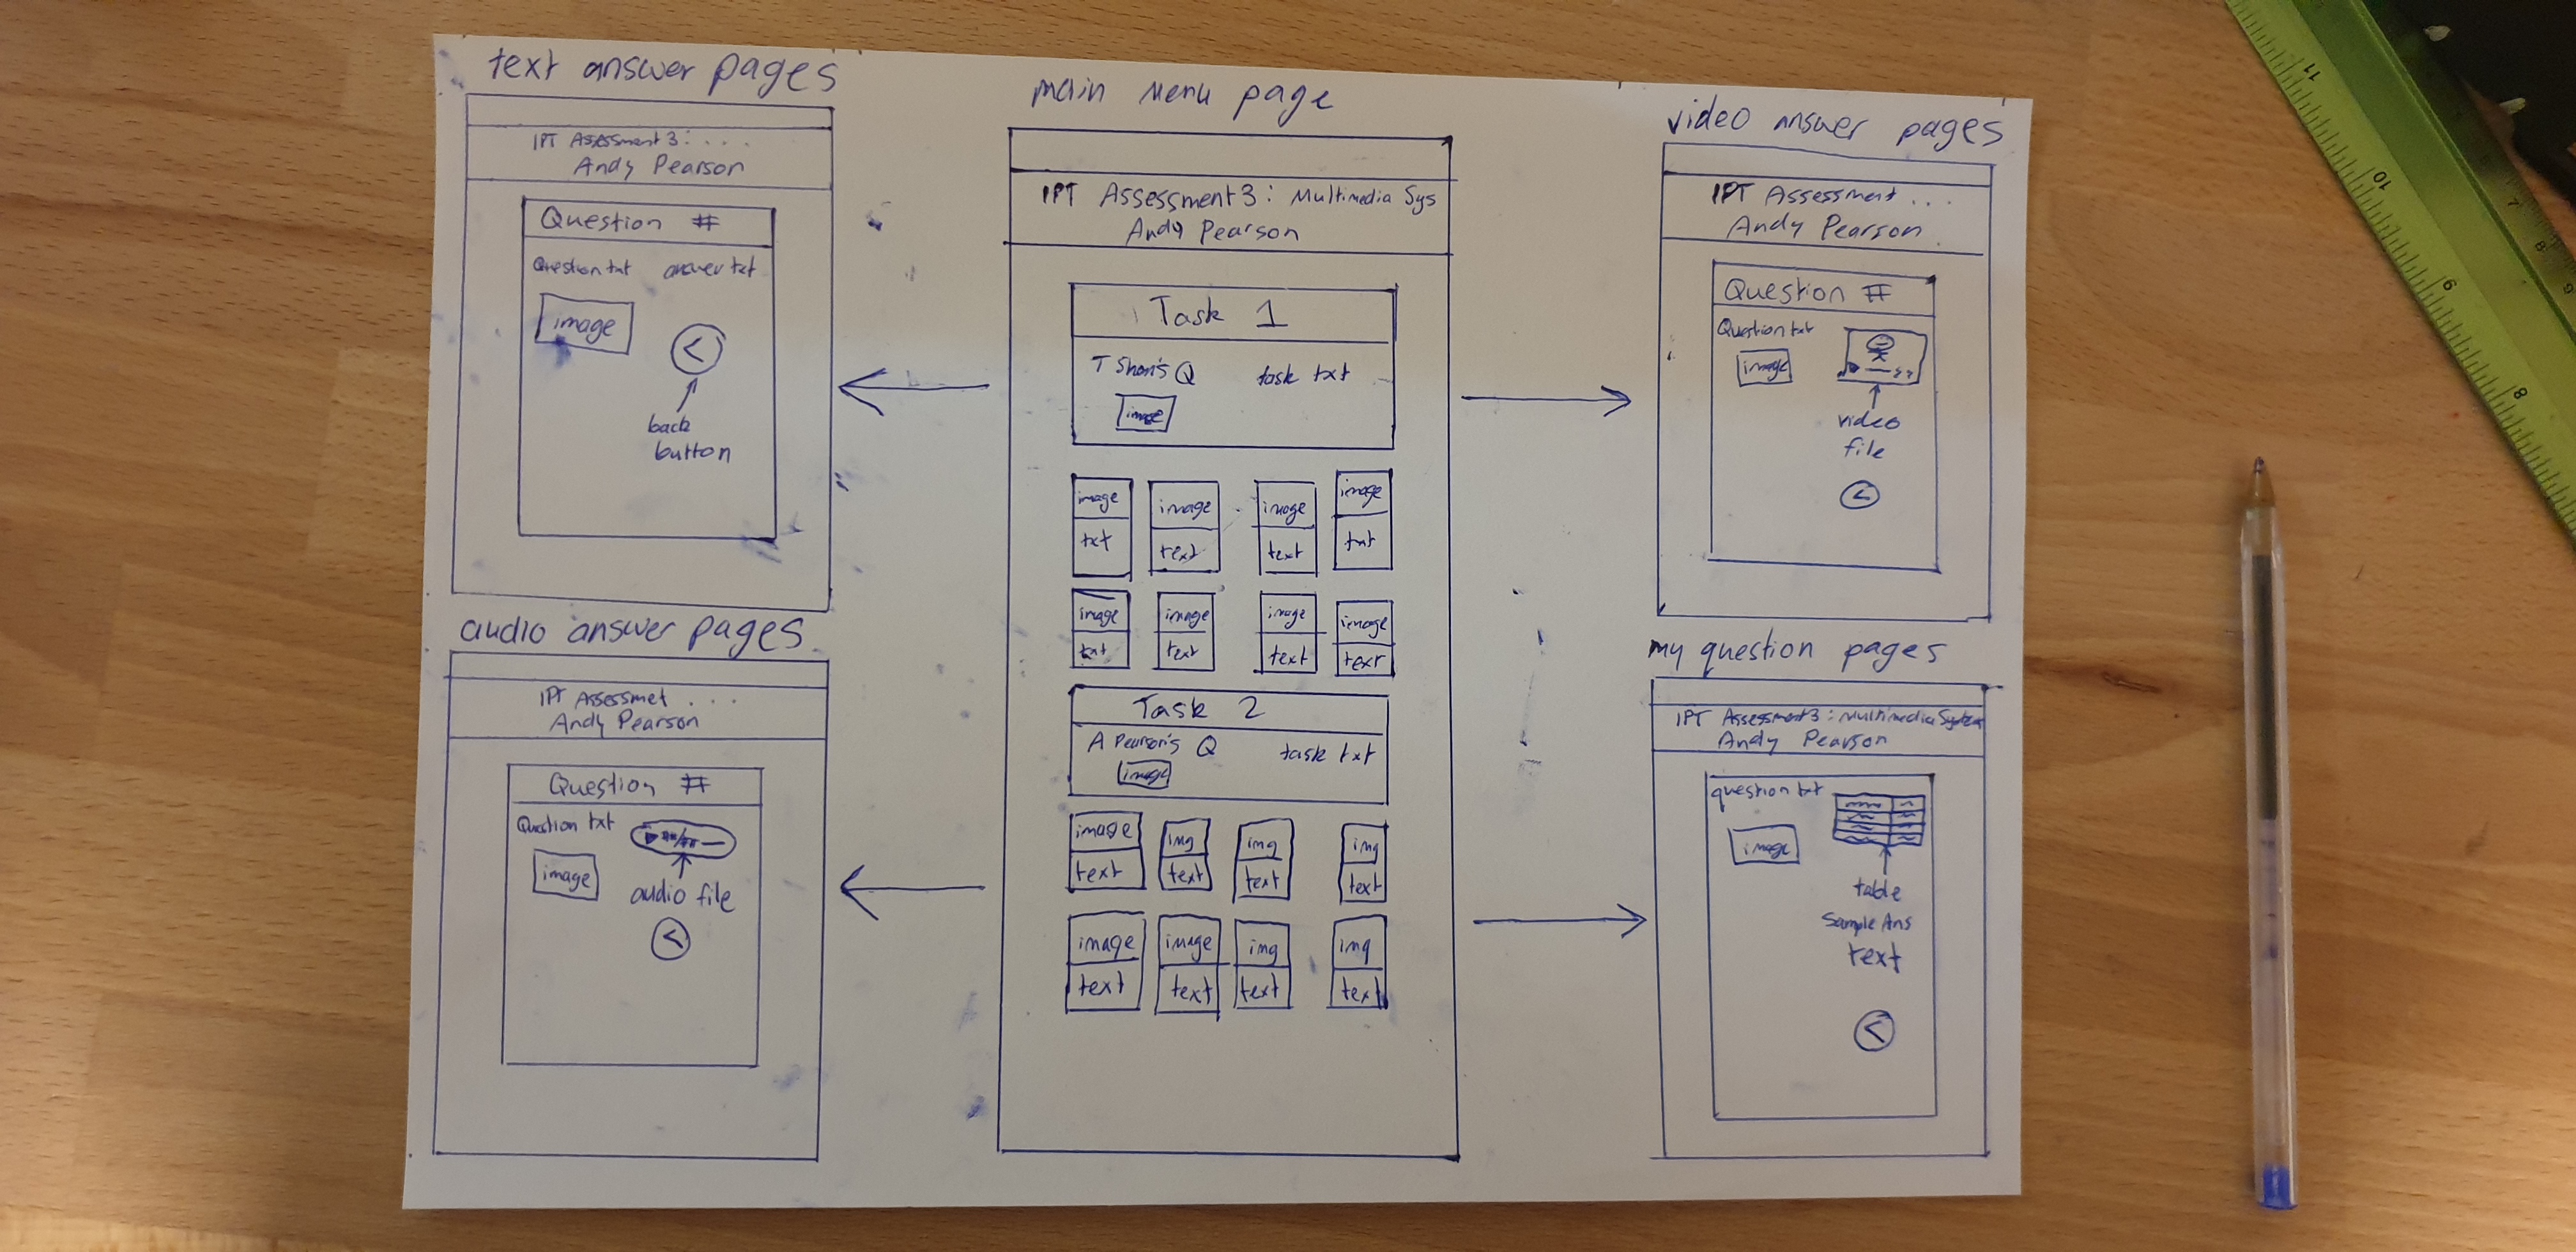 text answer pages
IPT Assessment3: ....
Andy Pearson
Question #
Question txt answer txt
image
<
back
button
audio answer pages
IPT Assessmet ...
Andy Pearson
Question #
Question txt
image
audio file
<
main menu page
IPT Assessment3: Multimedia Sys
Andy Pearson
Task 1
T Shan's Q task txt
image
image image image image
txt text text txt
image image image image
txt text text text
Task 2
A Pearson's Q task txt
image
image img img img
text text text text
image image img img
text text text text
video answer pages
IPT Assessment ...
Andy Pearson
Question #
Question txt
image
video
file
<
my question pages
IPT Assessment3: Multimedia System
Andy Pearson
question txt
image
table
Sample Ans
text
<
11
10
9
8
7
8
6